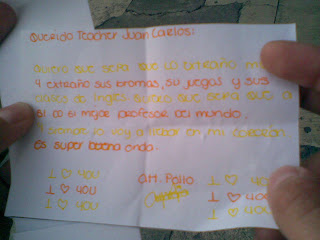 Querido Teacher Juan Carlos:
Quiero que sepa que lo extraño m
y extraño sus bromas, su juegos y sus
clases de ingles quiero que sepa que
el mejor profesor del mundo.
Y siempre lo voy a llevar en mi corazón
es super buena onda.
I ♡ YOU Att. Pollo. I ♡ YOU
I ♡ YOU I ♡ YOU
I ♡ YOU I ♡ YOU